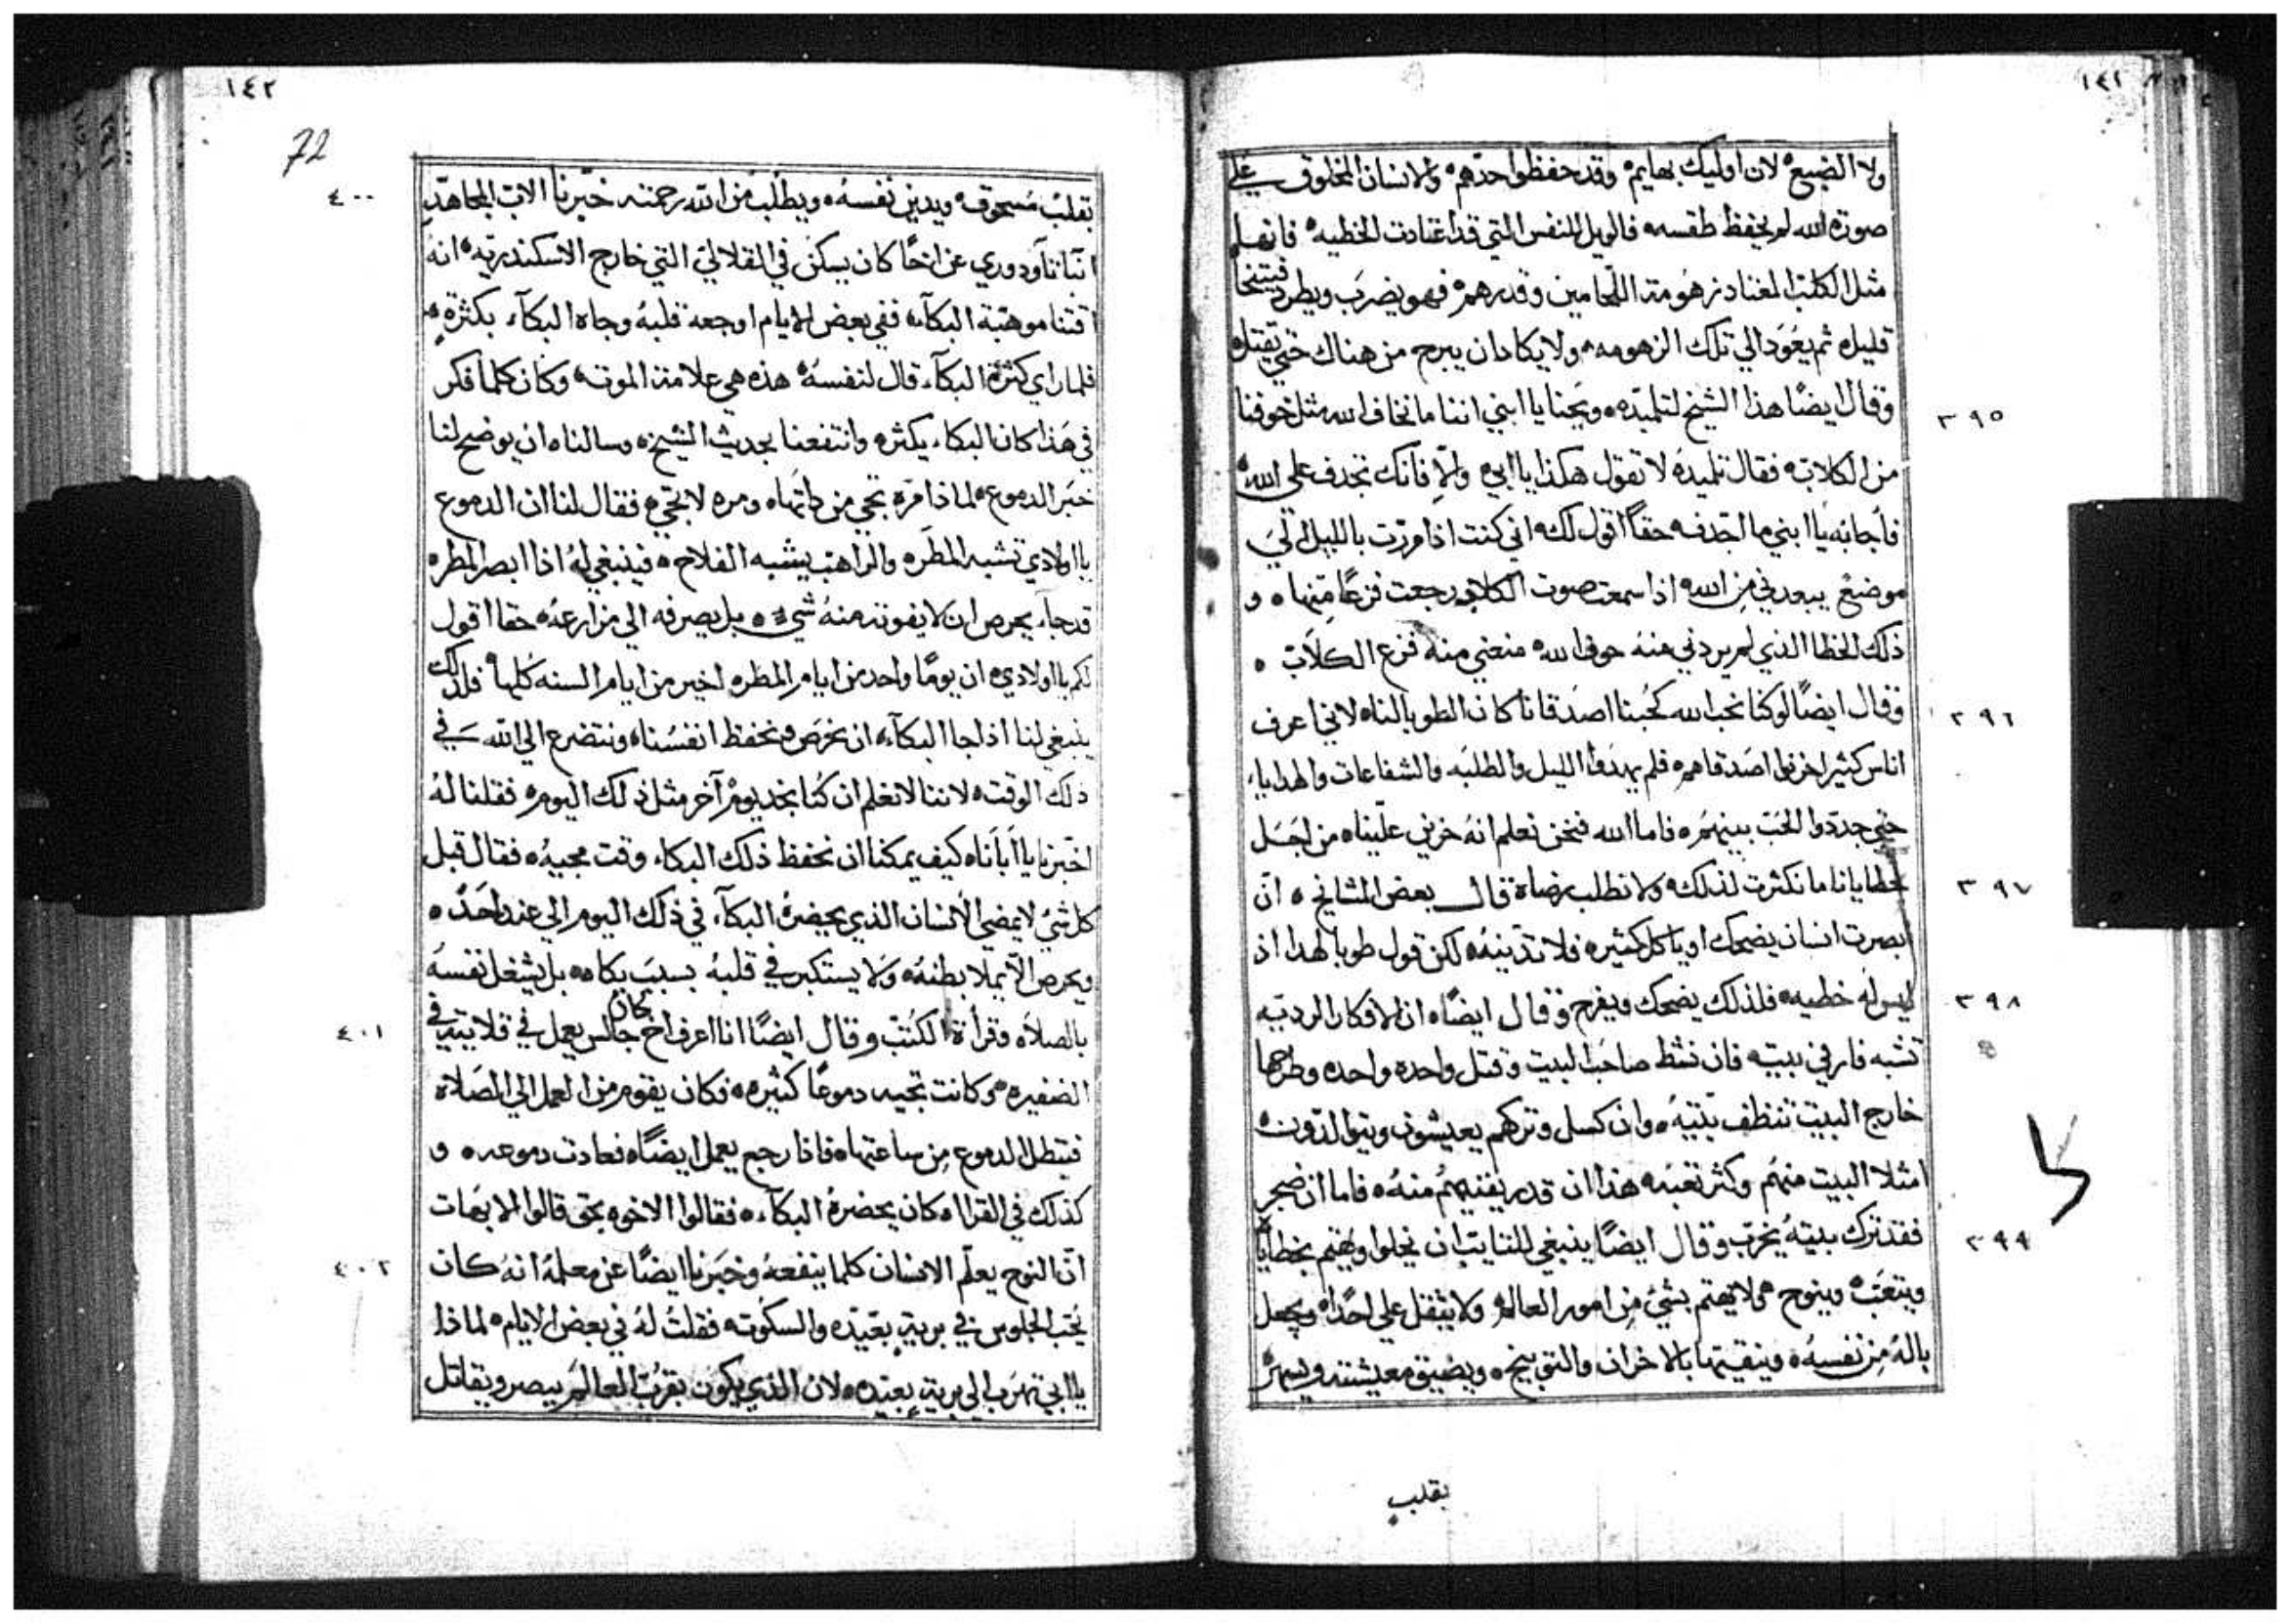 ١٤١
ولا الضبع لان اوليك بهايم وقد حفظوا حدهم والانسان المخلوق علي
صورة الله لم يحفظ طقسه فالويل للنفس التي قد اعتادت الخطيه فانها
مثل الكلب المعتاد زهومة اللحامين وقدرهم فهو يضرب ويطرد فيتنحا
قليل ثم يعود الي تلك الزهومه ولا يكاد ان يبرح من هناك حتي يقتل
٣٩٥
وقال ايضًا هذا الشيخ لتلميده ويحنا يا ابني اننا ما نخاف الله مثل خوفنا
من الكلاب فقال تلميده لا تقول هكذا يا ابي والا فانك تجدف علي الله
فاجابه يا ابني ما اجدف حقاً اقول لك اني كنت اذا مررت بالليل الي
موضع يبعدني من الله اذا سمعت صوت الكلاب رجعت فزعًا منها و
ذلك الخطا الذي لم يردني منه خوف الله منعني منه فزع الكلاب
٣٩٦
وقال ايضًا لو كنا نحب الله كحبنا اصدقانا كان الطوبا لنا لاني اعرف
اناس كثير احزنوا اصدقاهم فلم يهدوا الليل والطلبه والشفاعات والهدايا
حتي جددوا الحب بينهم فاما الله فنحن نعلم انه حزين علينا من اجل
٣٩٧
خطايانا ما نكثرت لذلك ولا نطلب رضاه قال بعض المشايخ ان
ابصرت انسان يضحك او ياكل كثير فلا تدينه لكن قول طوبا لهدا اذ
٣٩٨
ليس له خطيه فلذلك يضحك ويفرح وقال ايضًا ان الافكار الرديه
تشبه فار في بيت فان نشط صاحب البيت وقتل واحده واحده وطرحها
خارج البيت تنظف بيته وان كسل وتركهم يعيشون ويتوالدون
امتلا البيت منهم وكثر تعبه هذا ان قدر يفنيهم منه فاما ان ضجر
٣٩٩
فقد ترك بيته يخرب وقال ايضًا ينبغي للتايب ان يخلوا ويهتم بخطاياه
ويتعب وينوح ولا يهتم بشي من امور العالم ولا يثقل علي احدًا ويجعل
باله من نفسه وينقيها بالاحزان والتوبيخ ويضيق معيشته ويسهر
بقلب
١٤٢
72
٤٠٠
بقلب مسحوق ويدين نفسه ويطلب من الله رحمته خبرنا الاب المجاهد
انبا تاودوري عن اخًا كان يسكن في القلالي التي خارج الاسكندريه انه
اقتنا موهبة البكآء ففي بعض الايام اوجعه قلبه وجاه البكآء بكثره
فلما راي كثرة البكآء قال لنفسه هذه هي علامة الموت وكان كلما فكر
في هذا كان البكاء يكثر وانتفعنا بحديث الشيخ وسالناه ان يوضح لنا
خبر الدموع لماذا مره تجي من ذاتها ومره لا تجي فقال لنا ان الدموع
يا اولادي تشبه المطر والراهب يشبه الفلاح فينبغي له اذا ابصر المطر
قد جاء يحرص ان لا يفوته منه شي بل يصرفه الي مزارعه حقا اقول
لكم يا اولادي ان يومًا واحد من ايام المطر اخير من ايام السنه كلها فلذلك
ينبغي لنا اذا جا البكآء ان نحرص ونحفظ انفسنا ونتضرع الي الله في
ذلك الوقت لاننا لا نعلم ان كنا نجد يوم آخر مثل ذلك اليوم فقلنا له
اخبرنا يا ابانا كيف يمكنا ان نحفظ ذلك البكاء وقت مجيه فقال قبل
كل شي لا يمضي الانسان الذي يحضره البكآء في ذلك اليوم الي عند احد
ويحرص الا يملا بطنه ولا يستكبر في قلبه بسبب بكاه بل يشغل نفسه
٤٠١
بالصلاه وقرأة الكتب وقال ايضًا انا اعرف اخ كان جالس يعمل في قلايته في
الضفيره وكانت تجيه دموعًا كثيره فكان يقوم من العمل الي الصلاة
فتبطل الدموع من ساعتها فاذا رجع يعمل ايضًا فعادت دموعه و
كذلك في القراه كان يحضره البكآء فقالوا الاخوه بحق قالوا الابهات
٤٠٢
ان النوح يعلم الانسان كلما ينفعه وخبرنا ايضًا عن معلمه انه كان
يحب الجلوس في برية بعيده والسكوت فقلت له في بعض الايام لماذا
يا ابي تهرب الي برية بعيده لان الذي يكون بقرب العالم يبصر ويقاتل